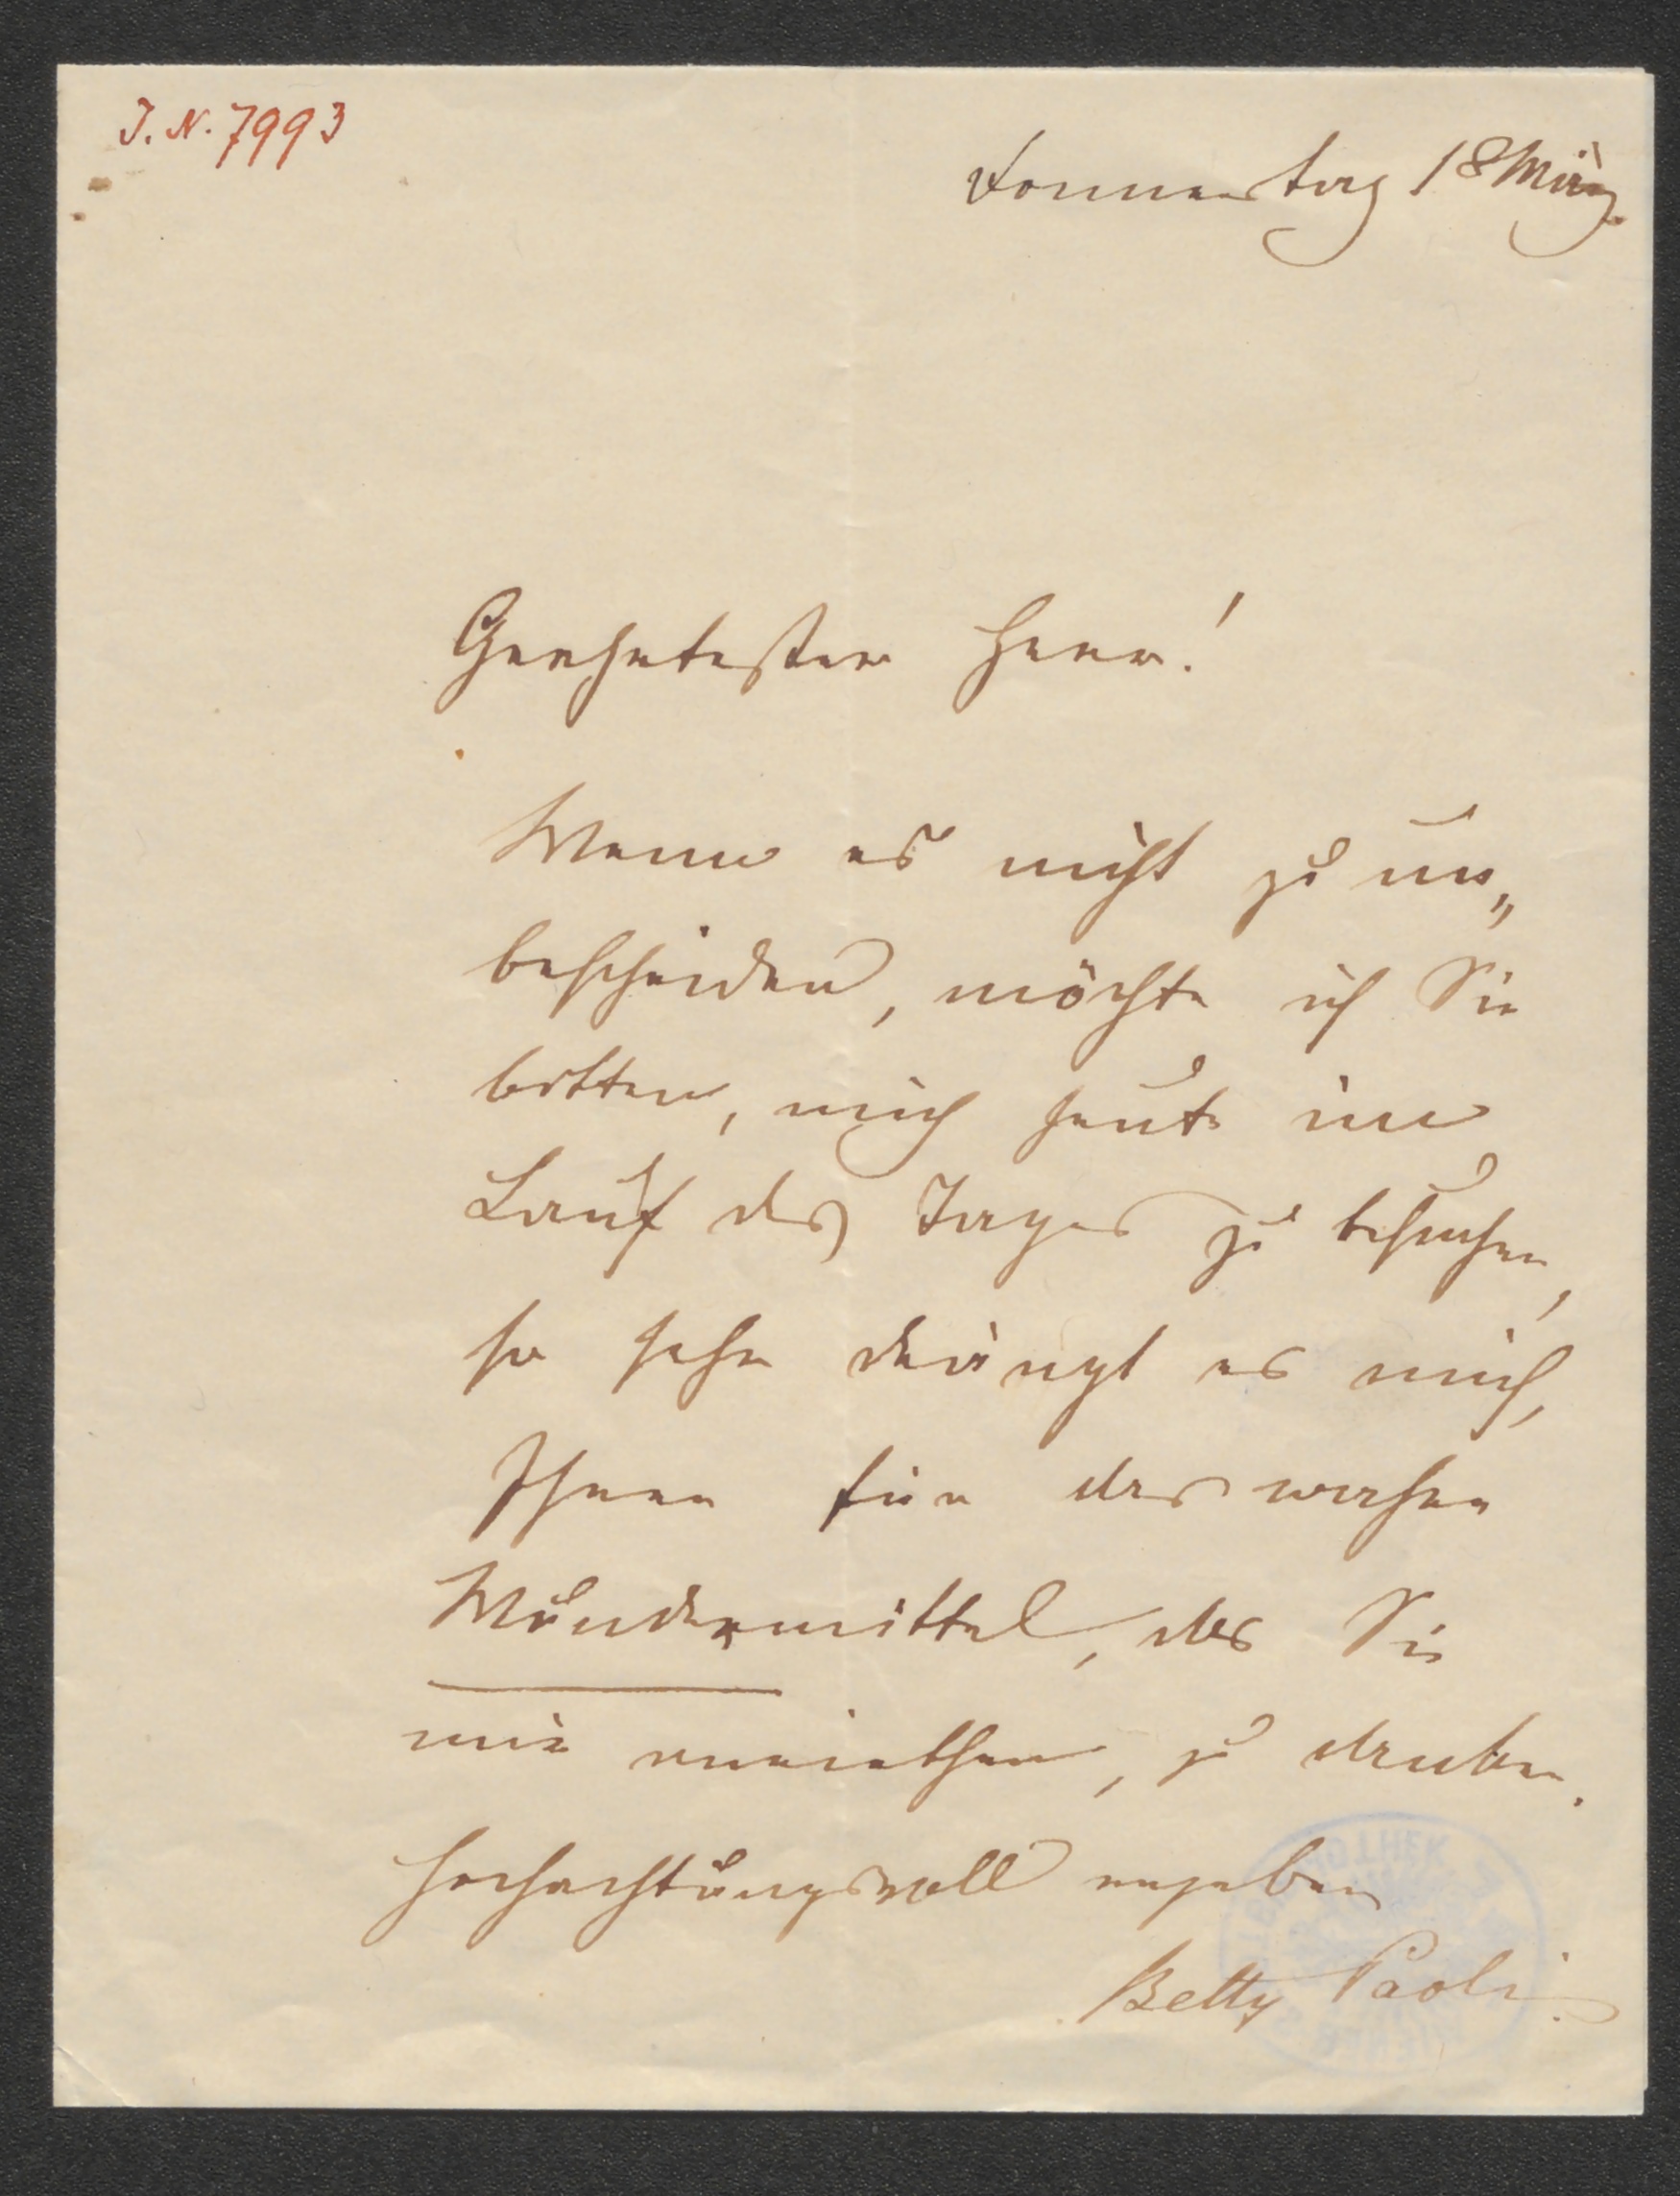 J. N. 7993
Donnerstag 18 März
Geehrtester Herr!
Wenn es nicht zu un„
bescheiden, möchte ich Sie
bitten, mich heute im
Lauf des Tages zu besuchen,
so sehr drängt es mich,
Ihnen für das wahre
Wundermittel, das Sie
mir anriethen, zu danken.
Hochachtungsvoll ergeben
Betty Paoli.